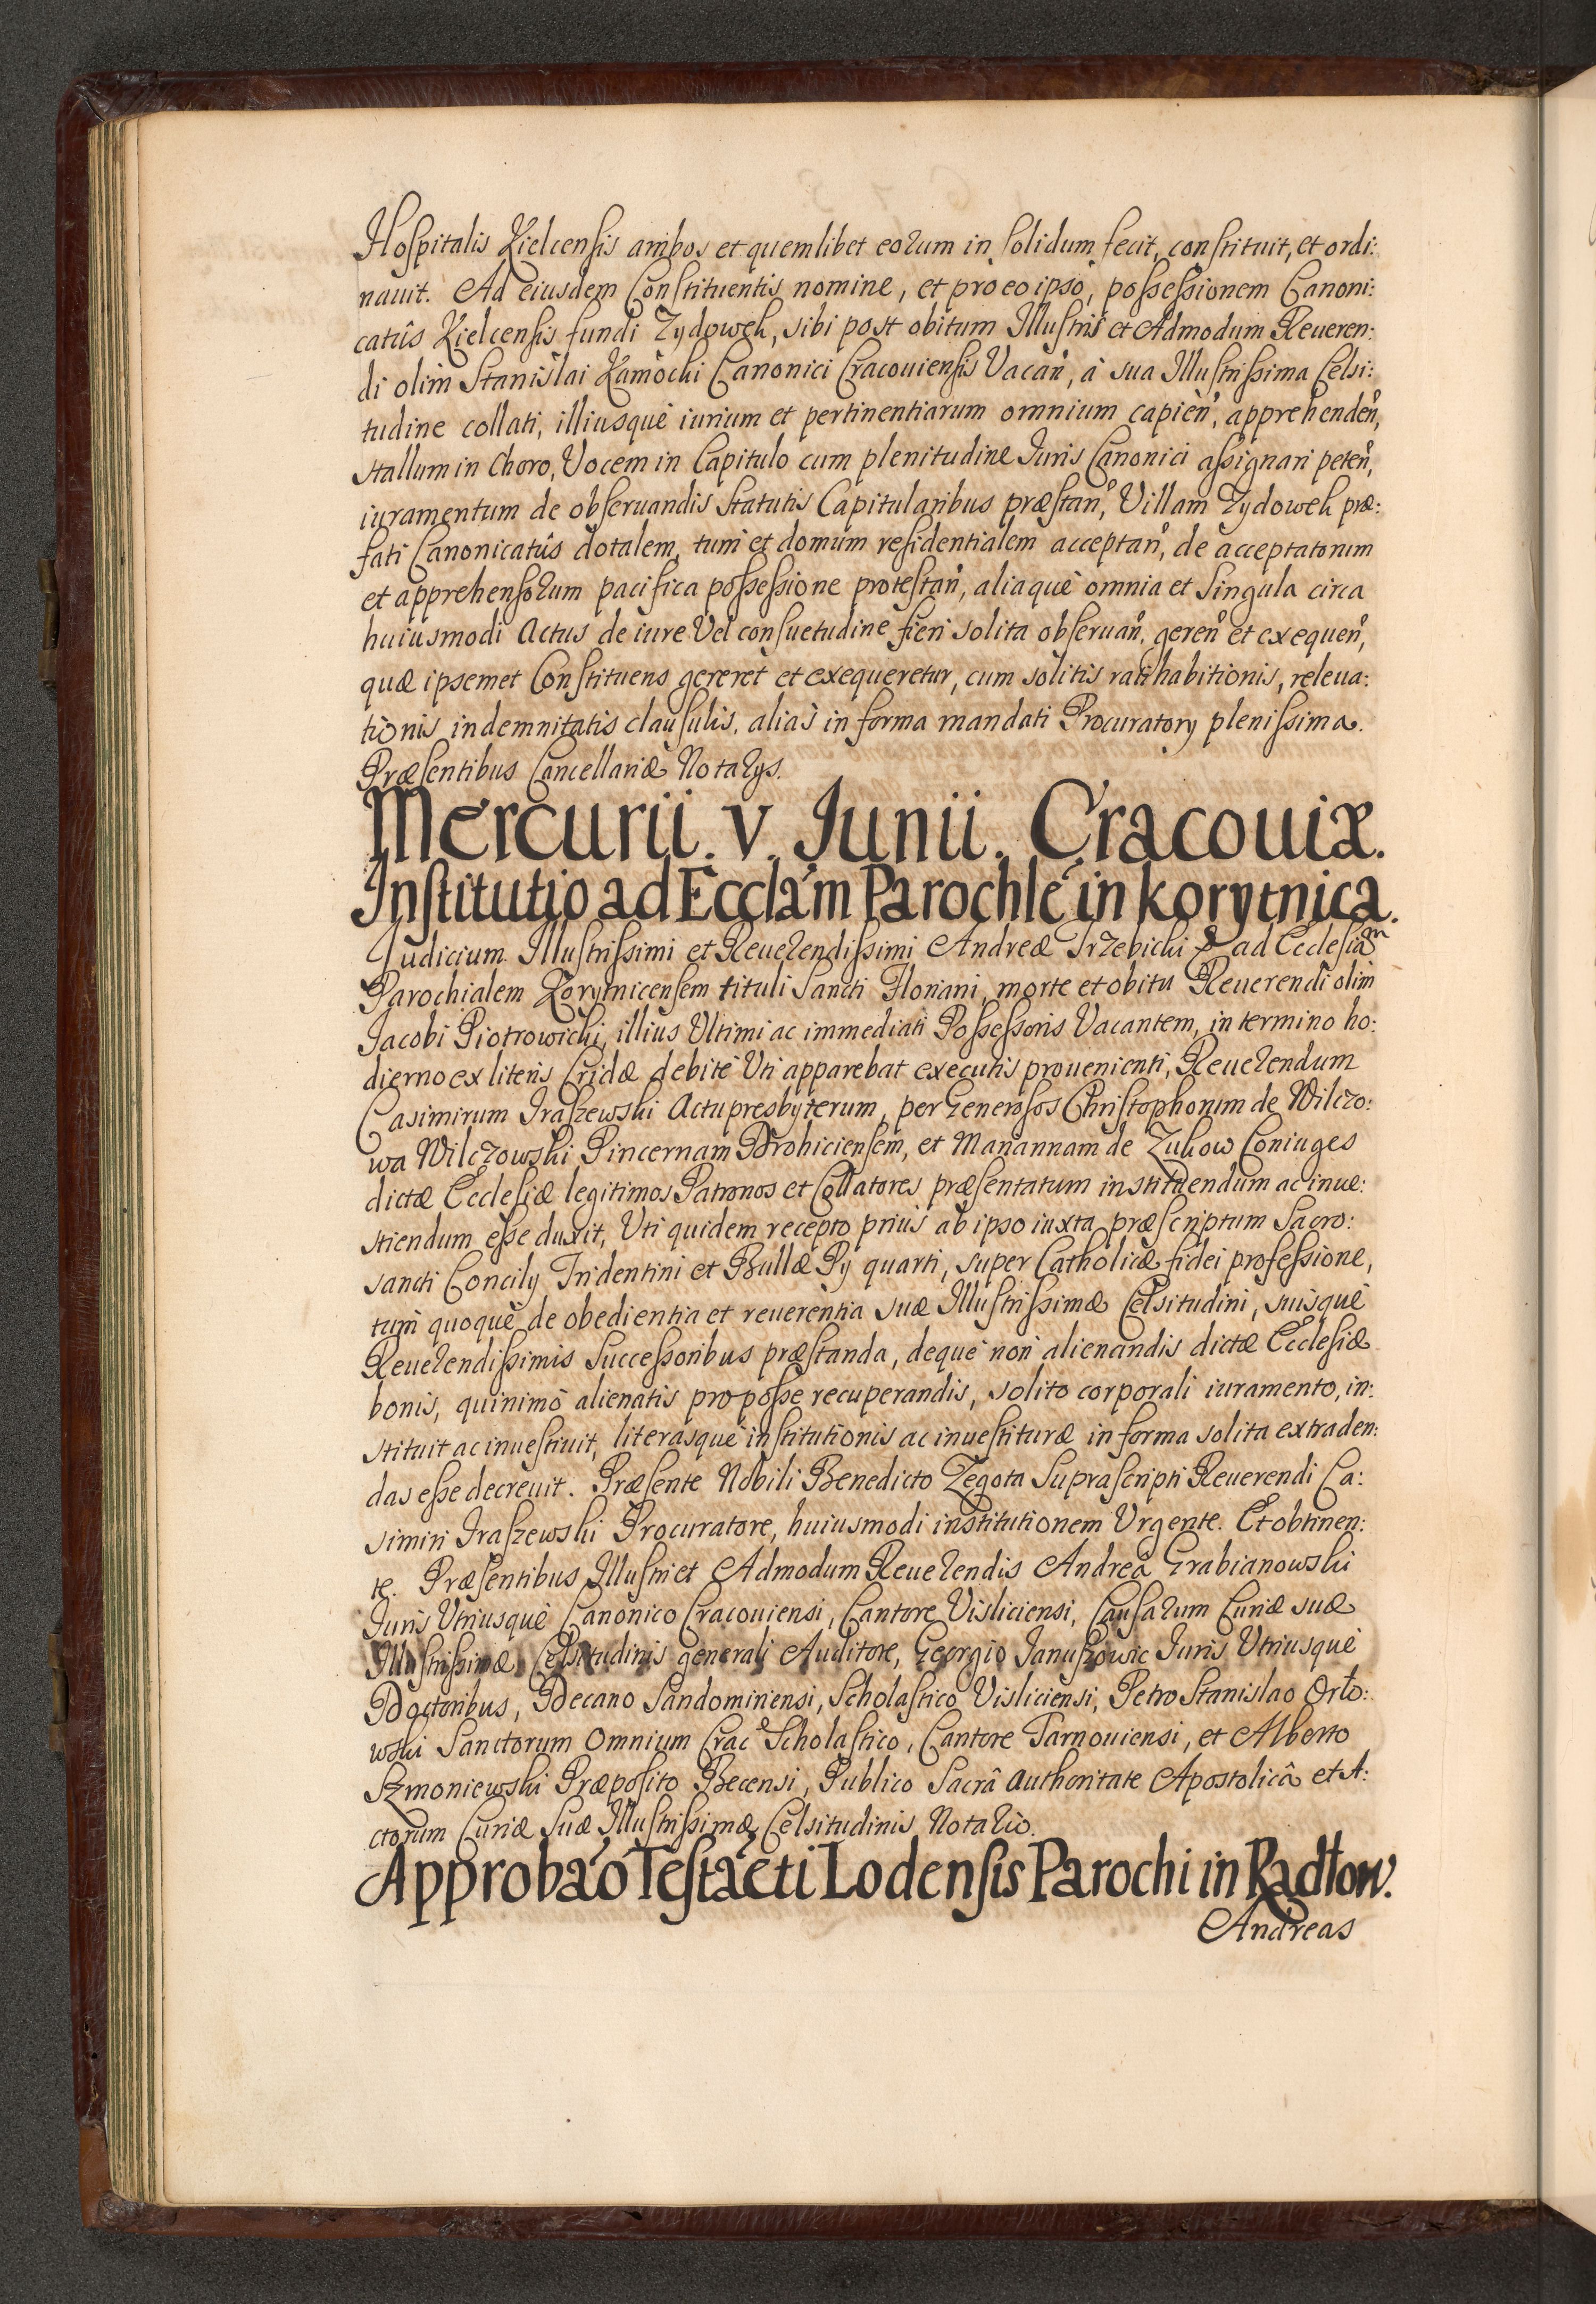 Hospitalis Kielcensis ambos et quemlibet eorum in solidum fecit, constituit, et ordi:
nauit. Ad eiusdem Constituentis nomine, et pro eo ipso, possessionem Canoni:
catûs Kielcensis fundi Zydowek, sibi post obitum Illustris et Admodum Reueren:
di olim Stanislai Kamocki Canonici Cracouiensis Vacan̄, à sua Illustrissima Celsi:
tudine collati, illiusquè iurium et pertinentiarum omnium capien̄, apprehenden̄,
stallum in Choro, Vocem in Capitulo cum plenitudine Iuris Canonici assignari peten̄,
iuramentum de obseruandis statutis Capitularibus præstan̄, Villam Zydowek præ:
fati Canonicatûs dotalem, tum et domum residentialem acceptan̄, de acceptatorum
et apprehensorum pacifica possessione protestan̄, aliaquè omnia et singula circa
huiusmodi Actus de iure Vel consuetudine fieri solita obseruan̄, geren̄ et exequen̄,
quæ ipsemet Constituens gereret et exequeretur, cum solitis ratihabitionis, releua:
tionis indemnitatis clausulis, aliàs in forma mandati Procuratory plenissima.
Præsentibus Cancellariæ Notarys.
Mercurii. v. Junii. Cracouiæ.
Institutio ad Eccla̅m Parochle̅ in Korytnica.
Judicium Illustrissimi et Reuerendissimi Andreæ Trzebicki ad Ecclesiam
Parochialem Korytnicensem tituli Sancti Floriani, morte et obitu Reuerendi olim
Jacobi Piotrowicki, illius Ultimi ac immediati Possessoris Vacantem, in termino ho:
dierno ex literis Cridæ debitè Uti apparebat executis prouenienti, Reuerendum
Casimirum Iraszewski Actu presbyterum, per Generosos Christophorum de Wilczo:
wa Wilczowski Pincernam Drohiciensem, et Mariannam de Zukow Coniuges
dictæ Ecclesiæ legitimos Patronos et Collatores præsentatum instituendum ac inue:
stiendum esse duxit, Uti quidem recepto priùs ab ipso iuxta præscriptum Sacro:
sancti Concily Tridentini et Bullæ Py quarti, super Catholicæ fidei professione,
tum quoquè de obedientia et reuerentia suæ Illustrissimæ Celsitudini, suisquè
Reuerendissimis Successoribus præstanda, dequè non alienandis dictæ Ecclesiæ
bonis, quinimò alienatis pro posse recuperandis, solito corporali iuramento, in:
stituit ac inuestiuit, literasquè institutionis ac inuestituræ in forma solita extraden:
das esse decreuit. Præsente Nobili Benedicto Zegota Suprascripti Reuerendi Ca:
simiri Iraszewski Procuratore, huiusmodi institutionem Urgente. Et obtinen:
te. Præsentibus Illustri et Admodum Reuerendis Andreâ Grabianowski
Iuris Utriusquè Canonico Cracouiensi, Cantore Visliciensi, Causarum Curiæ suæ
Illustrissimæ Celsitudinis generali Auditore, Georgio Januszowic Iuris Utriusquè
Doctoribus, Decano Sandomiriensi, Scholastico Visliciensi, Petro Stanislao Orło:
wski Sanctorum Omnium Crac Scholastico, Cantore Tarnouiensi, et Alberto
Szmoniewski Præposito Becensi, Publico Sacrâ Authoritate Apostolicâ et A:
ctorum Curiæ Suæ Illustrissimæ Celsitudinis Notario.
Approba̅o Testa̅e̅ti Lodensis Parochi in Radłow.
Andreas